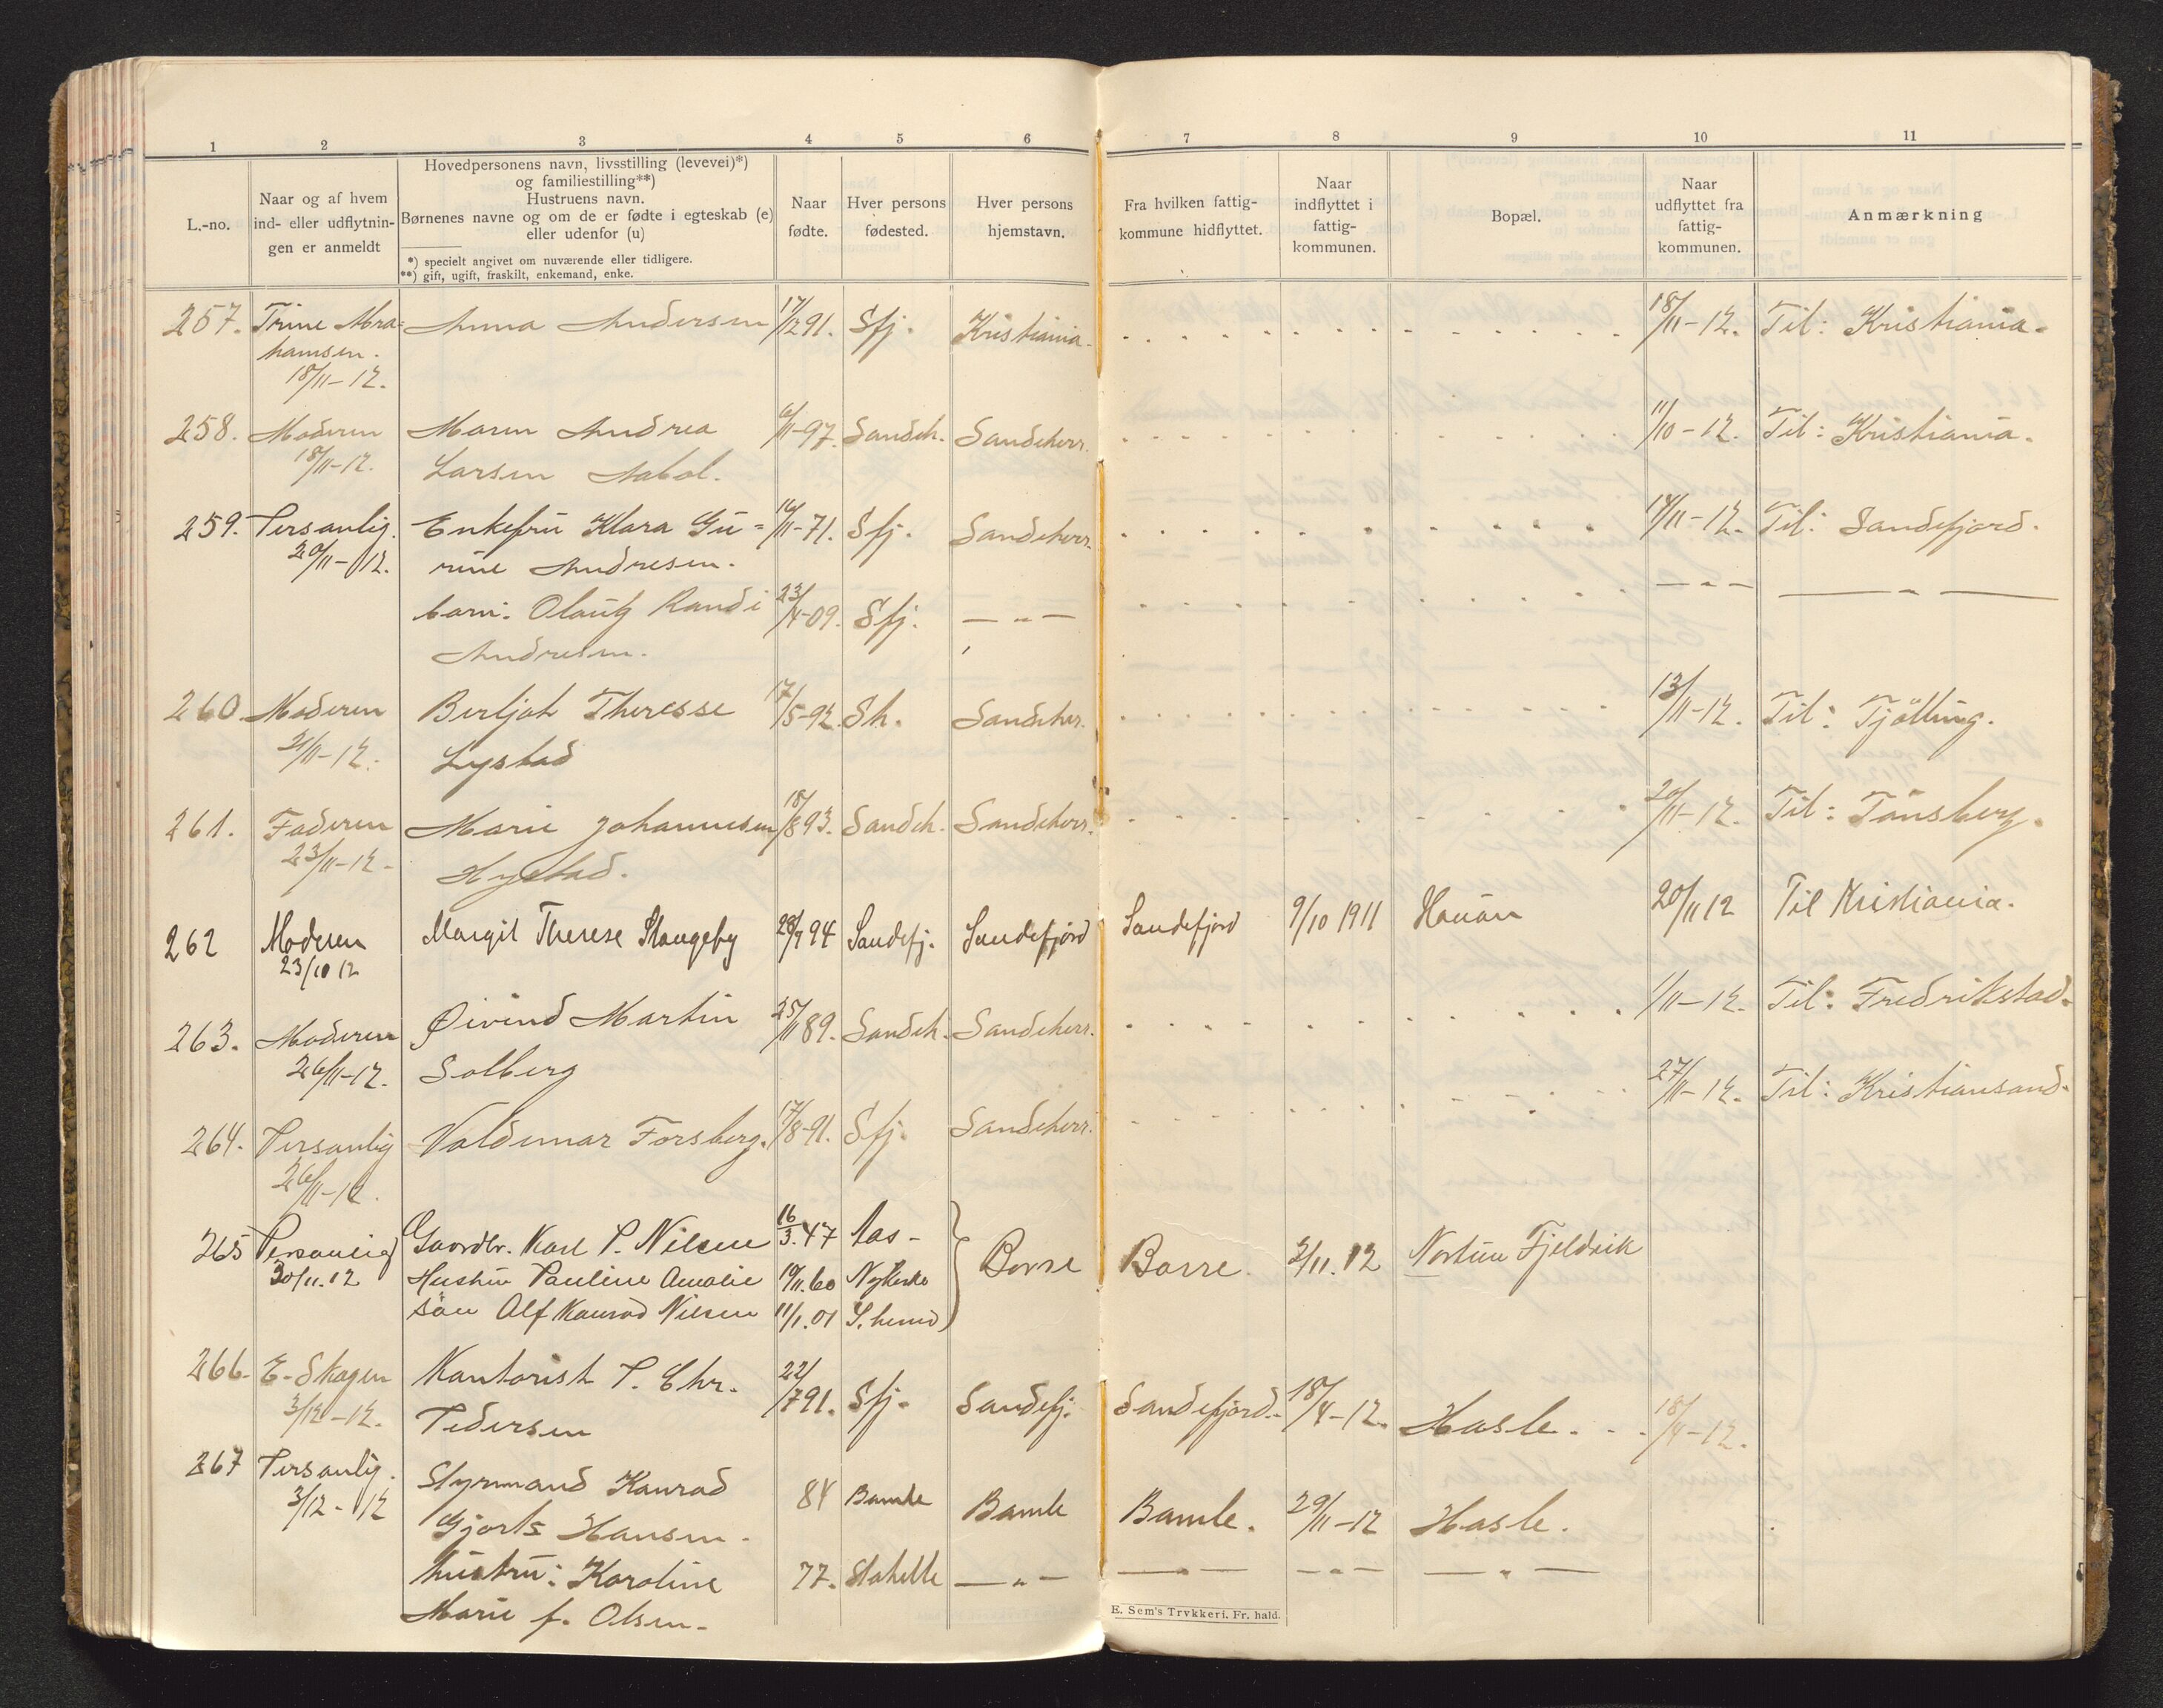 1 2 3 4 5 6 7 8 9 10 11
L.-no.
Naar og af hvem
ind- eller udflytnin-
gen er anmeldt
Hovedpersonens navn, livsstilling (levevei)*)
og familiestilling**)
Hustruens navn.
Børnenes navne og om de er fødte i egteskab (e)
eller udenfor (u)
*) specielt angivet om nuværende eller tidligere.
**) gift, ugift, fraskilt, enkemand, enke.
Naar
fødte.
Hver persons
fødested.
Hver persons
hjemstavn.
Fra hvilken fattig-
kommune hidflyttet.
Naar
indflyttet i
fattig-
kommunen.
Bopæl.
Naar
udflyttet fra
fattig-
kommunen.
Anmærkning
257. Trine Abra= Anna Andersen 17/12 91. Sfj. Kristiania. 18/11-12. Til: Kristiania.
hamsen.
18/11-12.
258. Moderen Maren Andrea 6/11-97. Sandeh. Sandeherr. 11/10-12. Til: Kristiania.
18/11-12. Larsen Aabol.
259. Personlig. Enkefru Klara Gu= 16/11-71. Sfj. Sandeherr. 14/11-12. Til: Sandefjord.
20/11-12. rine Andresen. — " — — " —
barn: Olaug Randi 23/4-09. Sfj. — " —
Andresen.
260 Moderen Berljot Theresse 17/5-92. Sh. Sandeher. 13/11-12. Til: Tjølling.
21/11-12. Lystad
261. Faderen Marie Johannesen 18/8 93. Sandeh. Sandeherr. 20/11-12. Til: Tønsberg.
23/11-12. Hystad.
262 Moderen Margit Therese Stangeby 28/9 94 Sandefj. Sandefjord Sandefjord 9/10 1911 Hauan 20/11 12 Til Kristiania.
23/10 12
263. Moderen Øivind Martin 25/11 89. Sandeh. Sandeherr. 1/11-12. Til: Fredrikstad.
26/11-12. Solberg
264. Personlig Valdemar Forsberg. 17/8-91. Sfj. Sandeherr. 27/11-12. Til: Kristiansand.
26/11-12.
265 Personlig Gaardbr. Karl P. Nilsen 16/3.47 Aas- Borre Borre. 2/11.12 Nordun Fjeldvik
30/11.12 Hustru Pauline Amalie 19/11.60 Nykirke
søn Alf Konrad Nilsen 11/1.01 S.herred
266. E. Skagen Kontorist P. Chr. 22/7 91. Sfj. Sandefj. Sandefjord. 18/4-12. Hasle. 18/4-12.
3/12-12. Pedersen
267 Personlig. Styrmand Konrad 84 Bamle Bamle Bamle. 29/11-12 Hasle.
3/12-12 Gjerts Hansen.
hustru: Karoline 77. Stathelle — " — — " — — " — — " —
Marie f. Olsen.
E. Sem's Trykkeri. Fr. hald.